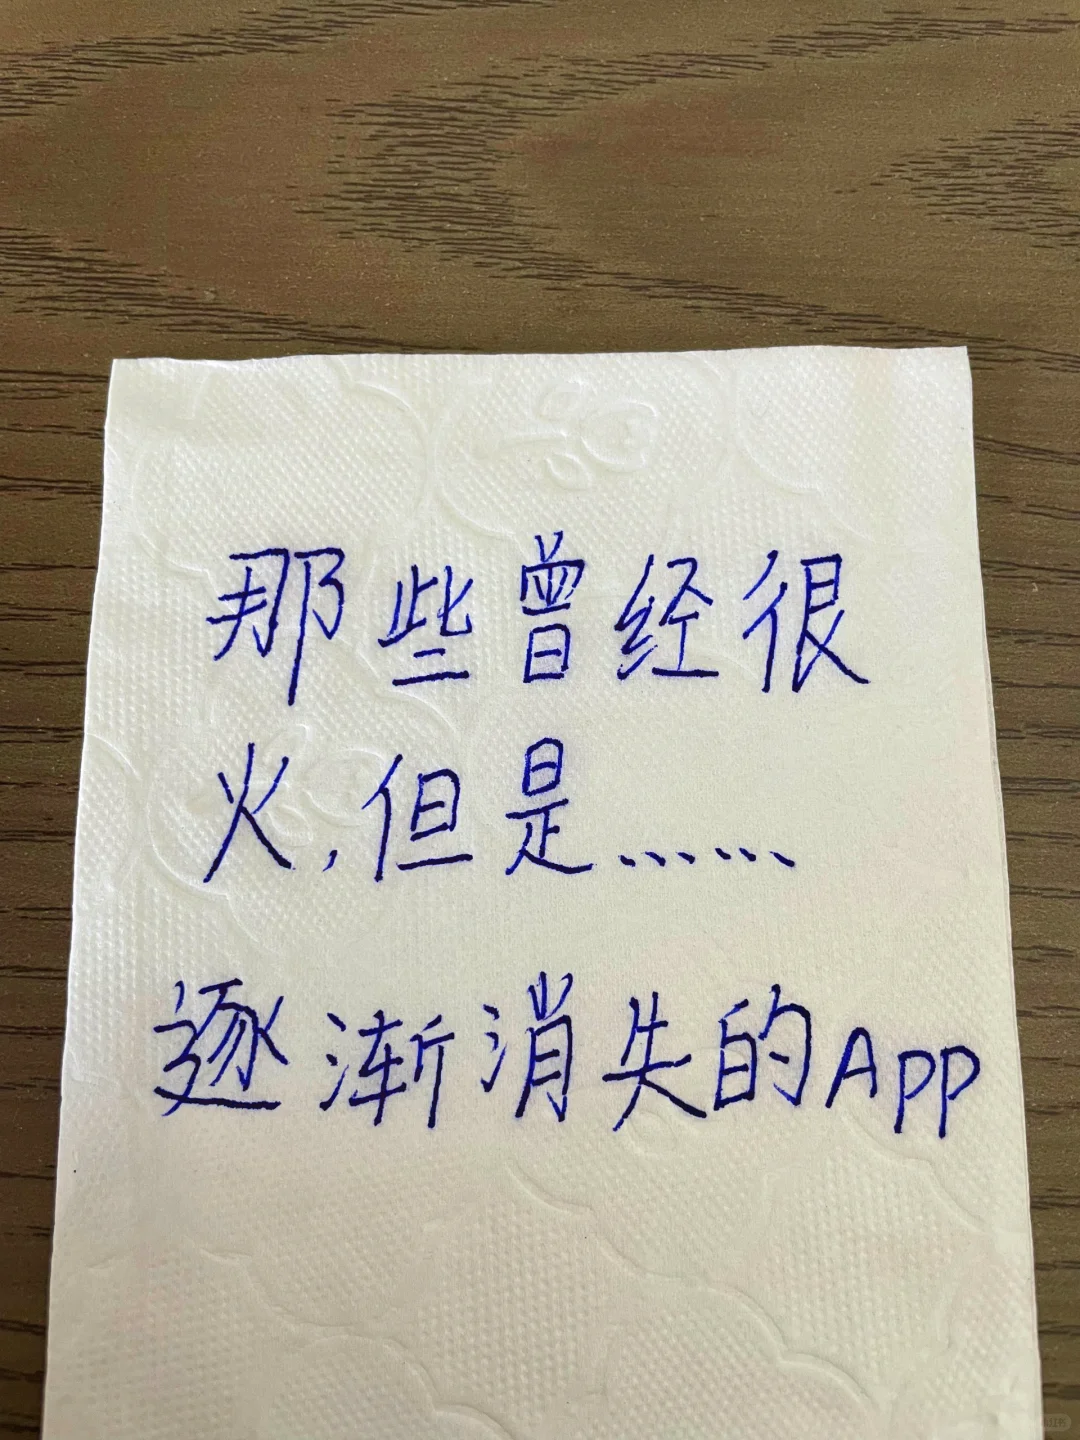 那些曾经很
火,但是……
逐渐消失的App
小红书